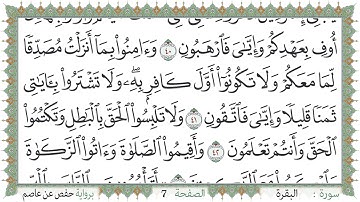 أُوفِ بِعَهْدِكُمْ وَإِيَّٰىَ فَٱرْهَبُونِ ٤٠ وَءَامِنُوا۟ بِمَآ أَنزَلْتُ مُصَدِّقًا
لِّمَا مَعَكُمْ وَلَا تَكُونُوٓا۟ أَوَّلَ كَافِرٍۭ بِهِۦ ۖ وَلَا تَشْتَرُوا۟ بِـَٔايَٰتِى
ثَمَنًا قَلِيلًا وَإِيَّٰىَ فَٱتَّقُونِ ٤١ وَلَا تَلْبِسُوا۟ ٱلْحَقَّ بِٱلْبَٰطِلِ وَتَكْتُمُوا۟
ٱلْحَقَّ وَأَنتُمْ تَعْلَمُونَ ٤٢ وَأَقِيمُوا۟ ٱلصَّلَوٰةَ وَءَاتُوا۟ ٱلزَّكَوٰةَ
سورة : البقرة الصفحة 7 برواية حفص عن عاصم